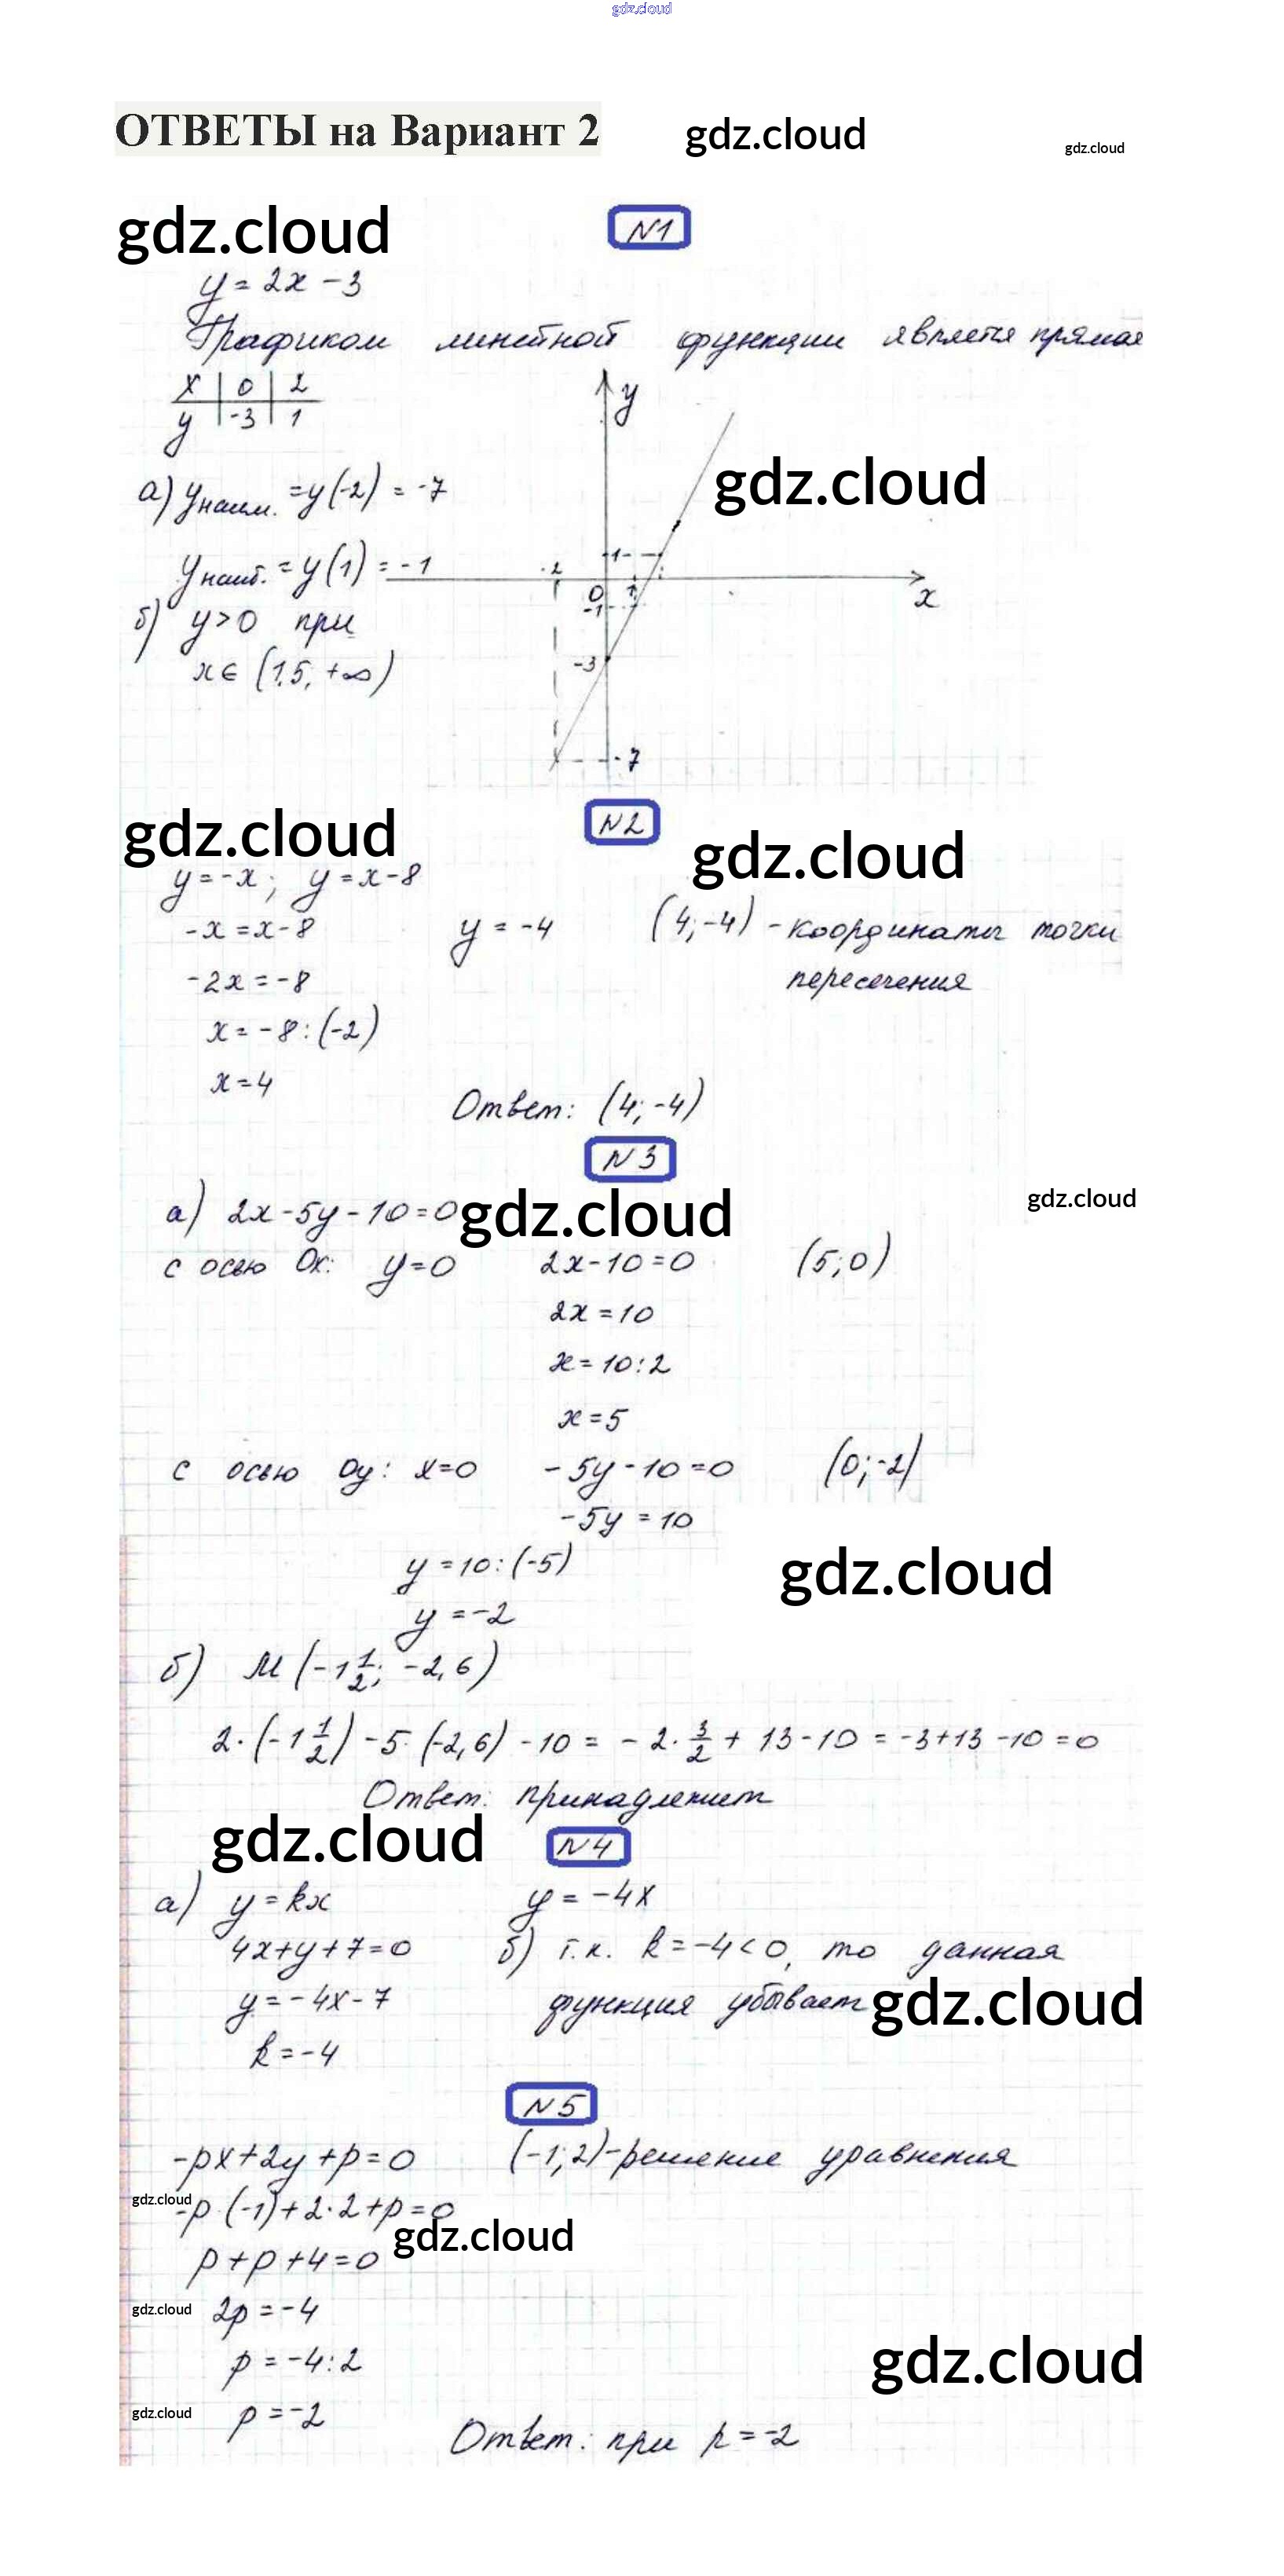 gdz.cloud
ОТВЕТЫ на Вариант 2 gdz.cloud gdz.cloud
gdz.cloud N1
y = 2x - 3
Графиком линейной функции является прямая
x | 0 | 2
y | -3 | 1
y
gdz.cloud
а) yнаим. = y(-2) = -7
yнаиб. = y(1) = -1
-2 1 0 1 x
-1
б) y>0 при
x∈ (1,5, +∞)
-3
-7
N2
gdz.cloud gdz.cloud
y = -x; y = x-8
-x = x-8 y = -4 (4; -4) - координаты точки
-2x = -8 пересечения
x = -8 : (-2)
x = 4
Ответ: (4; -4)
N3
а) 2x - 5y - 10 = 0 gdz.cloud gdz.cloud
с осью Ox: y=0 2x-10=0 (5;0)
2x = 10
x = 10:2
x = 5
с осью Oy: x=0 -5y-10=0 (0;-2)
-5y = 10
y = 10:(-5) gdz.cloud
y = -2
б) M (-1 1/2; -2,6)
2·(-1 1/2) - 5·(-2,6) - 10 = -2· 3/2 + 13-10 = -3+13-10 = 0
Ответ: принадлежит
gdz.cloud N4
а) y = kx y = -4x
4x+y+7=0 б) т.к. k = -4<0, то данная
y = -4x-7 функция убывает gdz.cloud
k = -4
N5
-px+2y+p=0 (-1;2)-решение уравнения
gdz.cloud
-p·(-1)+2·2+p=0
gdz.cloud
p+p+4=0
gdz.cloud 2p = -4
p = -4:2 gdz.cloud
gdz.cloud p = -2
Ответ: при p = -2